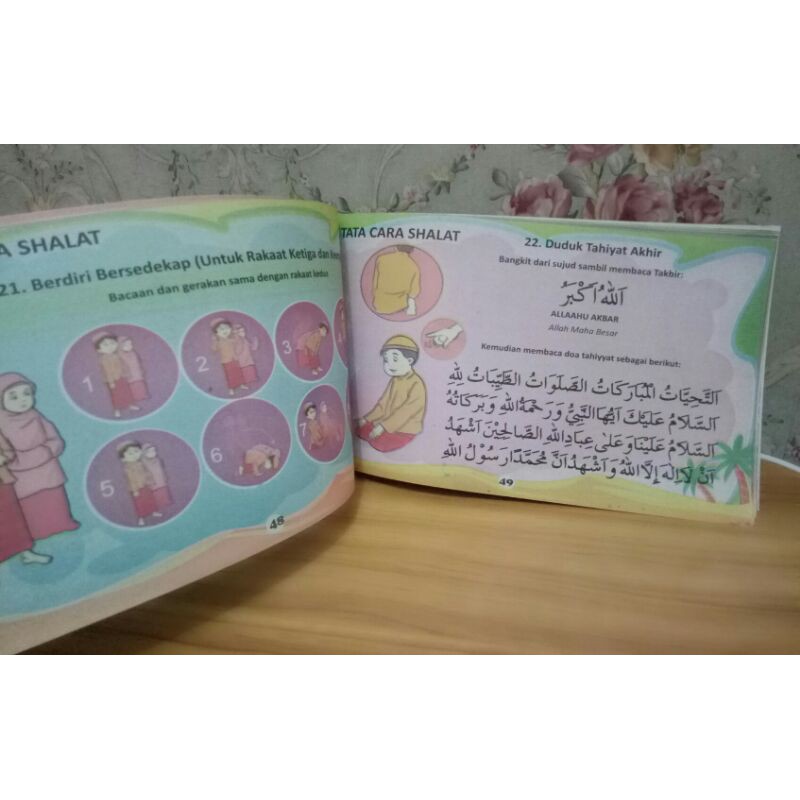 A SHALAT
21. Berdiri Bersedekap (Untuk Rakaat Ketiga dan
Bacaan dan gerakan sama dengan rakaat kedua
1
2
3
5
6
7
48
TATA CARA SHALAT
22. Duduk Tahiyat Akhir
Bangkit dari sujud sambil membaca Takbir:
اَللهُ اَكْبَرُ
ALLAAHU AKBAR
Allah Maha Besar
Kemudian membaca doa tahiyyat sebagai berikut:
اَلتَّحِيَّاتُ الْمُبَارَكَاتُ الصَّلَوَاتُ الطَّيِّبَاتُ لِلّٰهِ
اَلسَّلَامُ عَلَيْكَ اَيُّهَا النَّبِيُّ وَرَحْمَةُ اللهِ وَبَرَكَاتُهُ
اَلسَّلَامُ عَلَيْنَا وَعَلٰى عِبَادِ اللهِ الصَّالِحِيْنَ اَشْهَدُ
اَنْ لَا اِلٰهَ اِلَّا اللهُ وَاَشْهَدُ اَنَّ مُحَمَّدًا رَسُوْلُ اللهِ
49